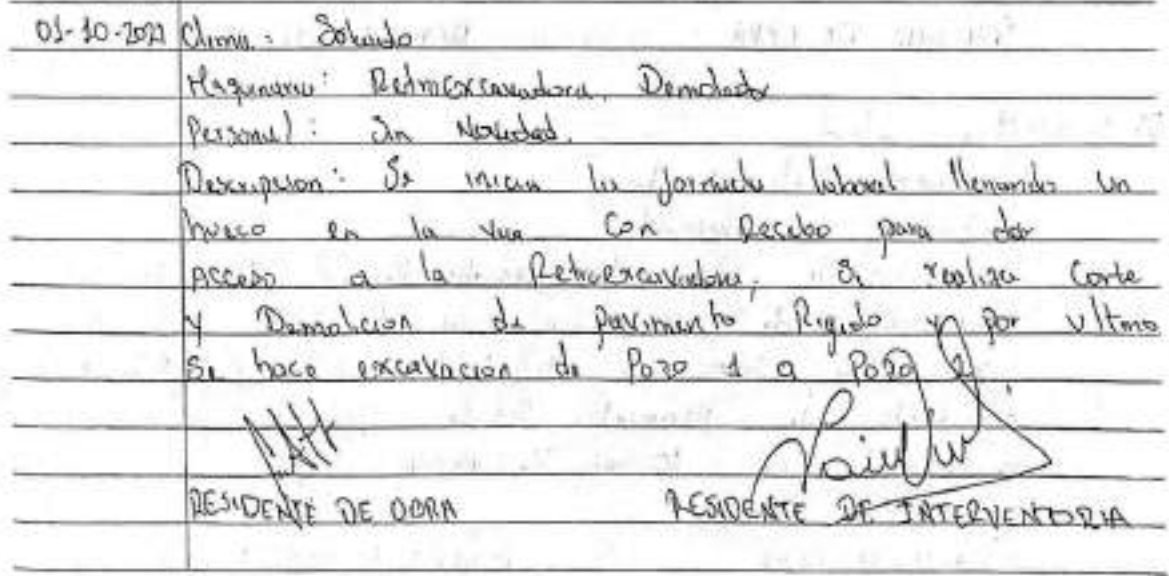 01-10-2021 Clima: Soleado
Maquinaria: Retroexcavadora, Demoledor
Personal: Sin Novedad.
Descripcion: Se inicia la jornada laboral llenando un
hueco en la via con Recebo para dar
Acceso a la Retroexcavadora, Se realiza Corte
y Demolicion de pavimento Rigido y por ultimo
Se hace excavacion de Pozo 1 a Pozo 2.
RESIDENTE DE OBRA RESIDENTE DE INTERVENTORIA